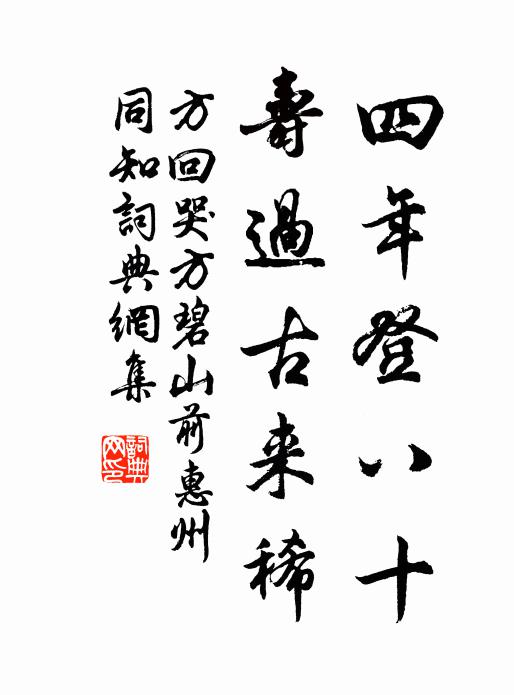 四年登八十
壽過古来稀
方回哭方碧山前惠州
同知詞典網集
詞典网印